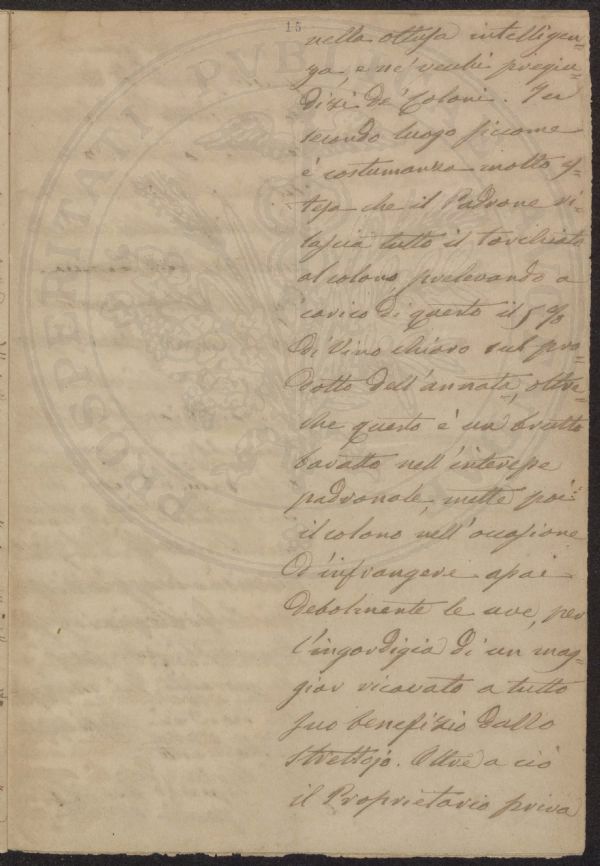 15
nella ottusa intelligen=
za, e ne' vecchi pregiu=
dizi de' Coloni. In
secondo luogo siccome
è costumanza molto e=
stesa che il Padrone ri=
lascia tutto il torchiato
al colono, prelevando a
carico di questo il 5 %
di Vino chiaro sul pro=
dotto dell'annata, oltre=
che questo è un brutto
baratto nell'interesse
padronale, mette poi
il colono nell'occasione
d'infrangere assai
debolmente le uve, per
l'ingordigia di un mag=
gior ricavato a tutto
suo benefizio dallo
strettojo. Oltre a ciò
il Proprietario priva
PROSPERITATI PVBLICAE